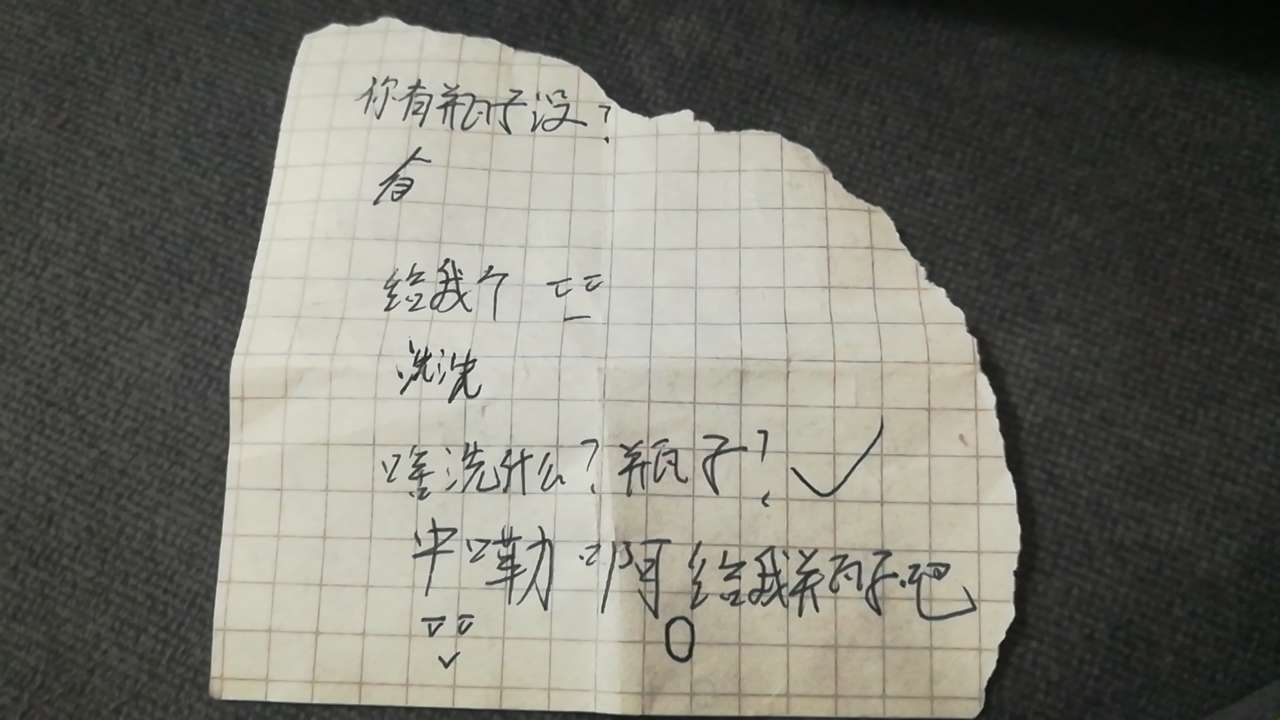 你有瓶子没?
有
给我个
洗洗
啥洗什么?瓶子?✓
中嘞啊给我瓶子吧